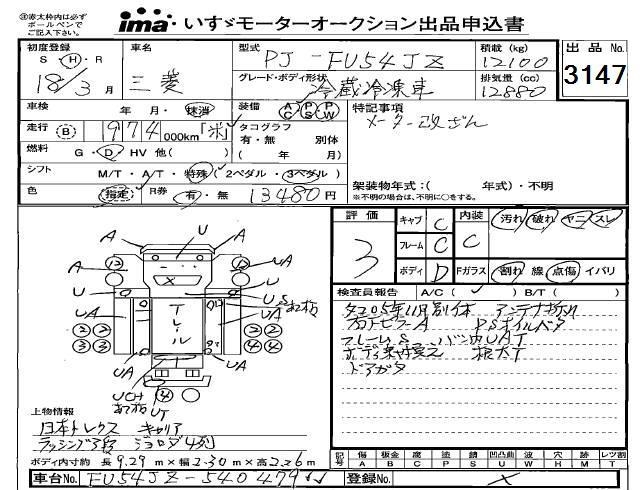 ※赤太枠内は必ずボールペンでご記入下さい。
ima いすゞモーターオークション出品申込書
初度登録 S・H・R 18年3月
車名 三菱
型式 PJ-FU54JZ
積載(kg) 12100
出品No. 3147
グレード・ボディ形状 冷蔵冷凍車
排気量(cc) 12880
車検 年・月・抹消
装備 AC PS PW
特記事項 メーター改ざん
走行 B 974 000km
タコグラフ 有・無 別体 ( 年 月)
燃料 G・D・HV 他( )
シフト M/T・A/T・特殊(2ペダル・3ペダル)
架装物年式:( 年式)・不明
※不明の場合は、不明に○をする。
色 指定 R券 有・無 13480円
評価 3
キャブ C 内装 C 汚れ 破れ ヤニ スレ
フレーム C
ボディ D Fガラス 割れ 線 点傷 イバリ
検査員報告 A/C( ) B/T( )
タコ05年11月別体 アンテナ折れ
フロントピラーA PSオイルベタ
フレームS バン内UAT
ドアガタ
上物情報
日本トレクス キャリア
ラッシング3段 ジョロダ4列
ボディ内寸約 長9.29m×幅2.30m×高2.26m
記号 傷A 板金B 腐C 塗P 錆S 凹凸U 波W 穴H 跡M レツ割T
車台No. FU54JZ-540479
登録No.